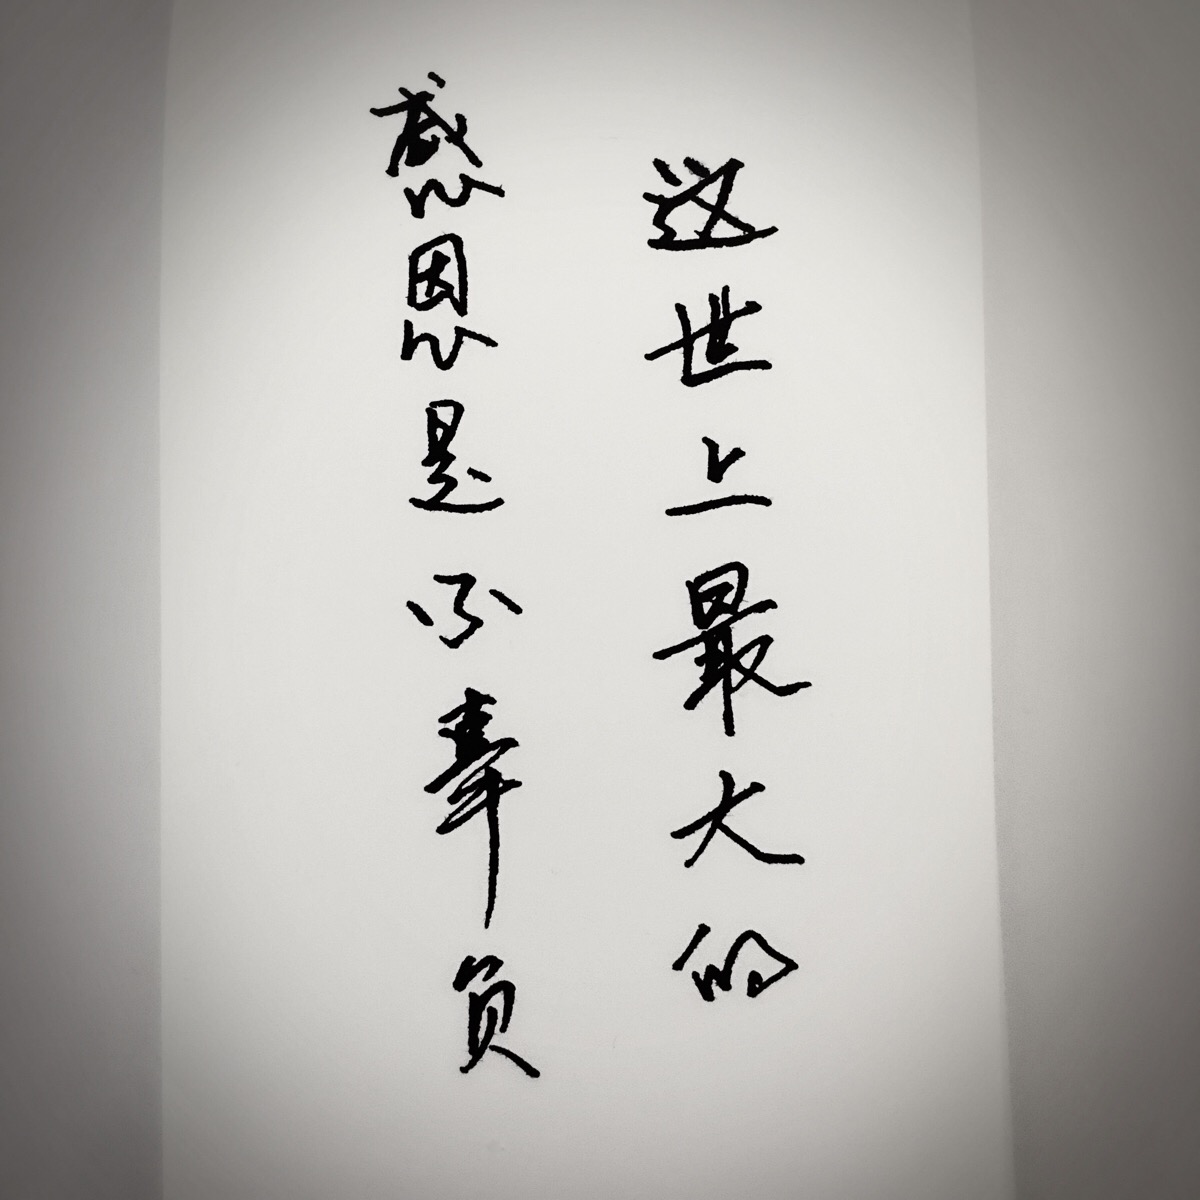 这世上最大的
感恩是不辜负